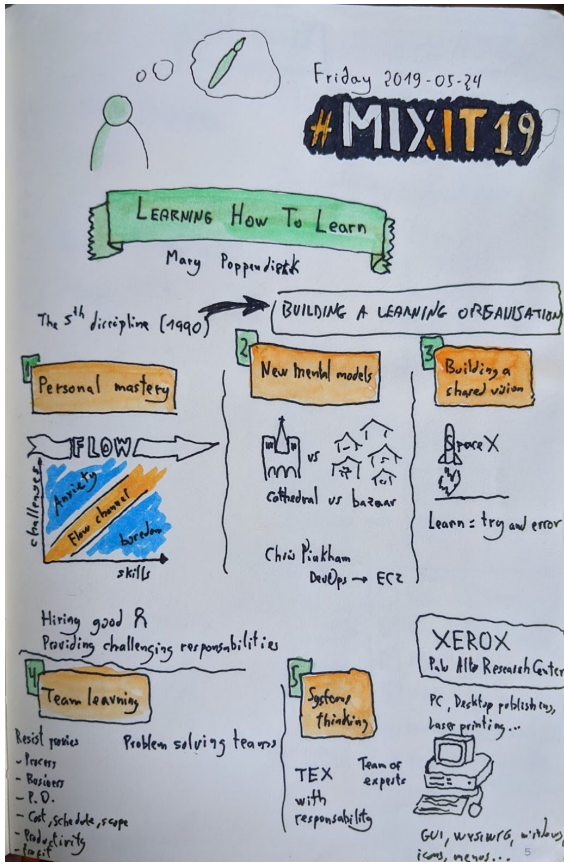 Friday 2019-05-24
#MIXIT19
LEARNING HOW TO LEARN
Mary Poppendieck
The 5th discipline (1990)
BUILDING A LEARNING ORGANISATION
1
Personal mastery
FLOW
challenges
Anxiety
Flow channel
boredom
skills
Hiring good
Providing challenging responsabilities
2
New mental models
vs
cathedral vs bazaar
Chris Pinkham
DevOps → EC2
3
Building a
shared vision
Space X
Learn = try and error
4
Team learning
Resist proxies
Problem solving teams
- Process
- Business
- P.O.
- Cost, schedule, scope
- Productivity
- Profit
5
Systems
thinking
TEX
with
responsability
Team of
experts
XEROX
Palo Alto Research Center
PC, Desktop publishing,
Laser printing...
GUI, WYSIWYG, windows,
icons, menus...
5